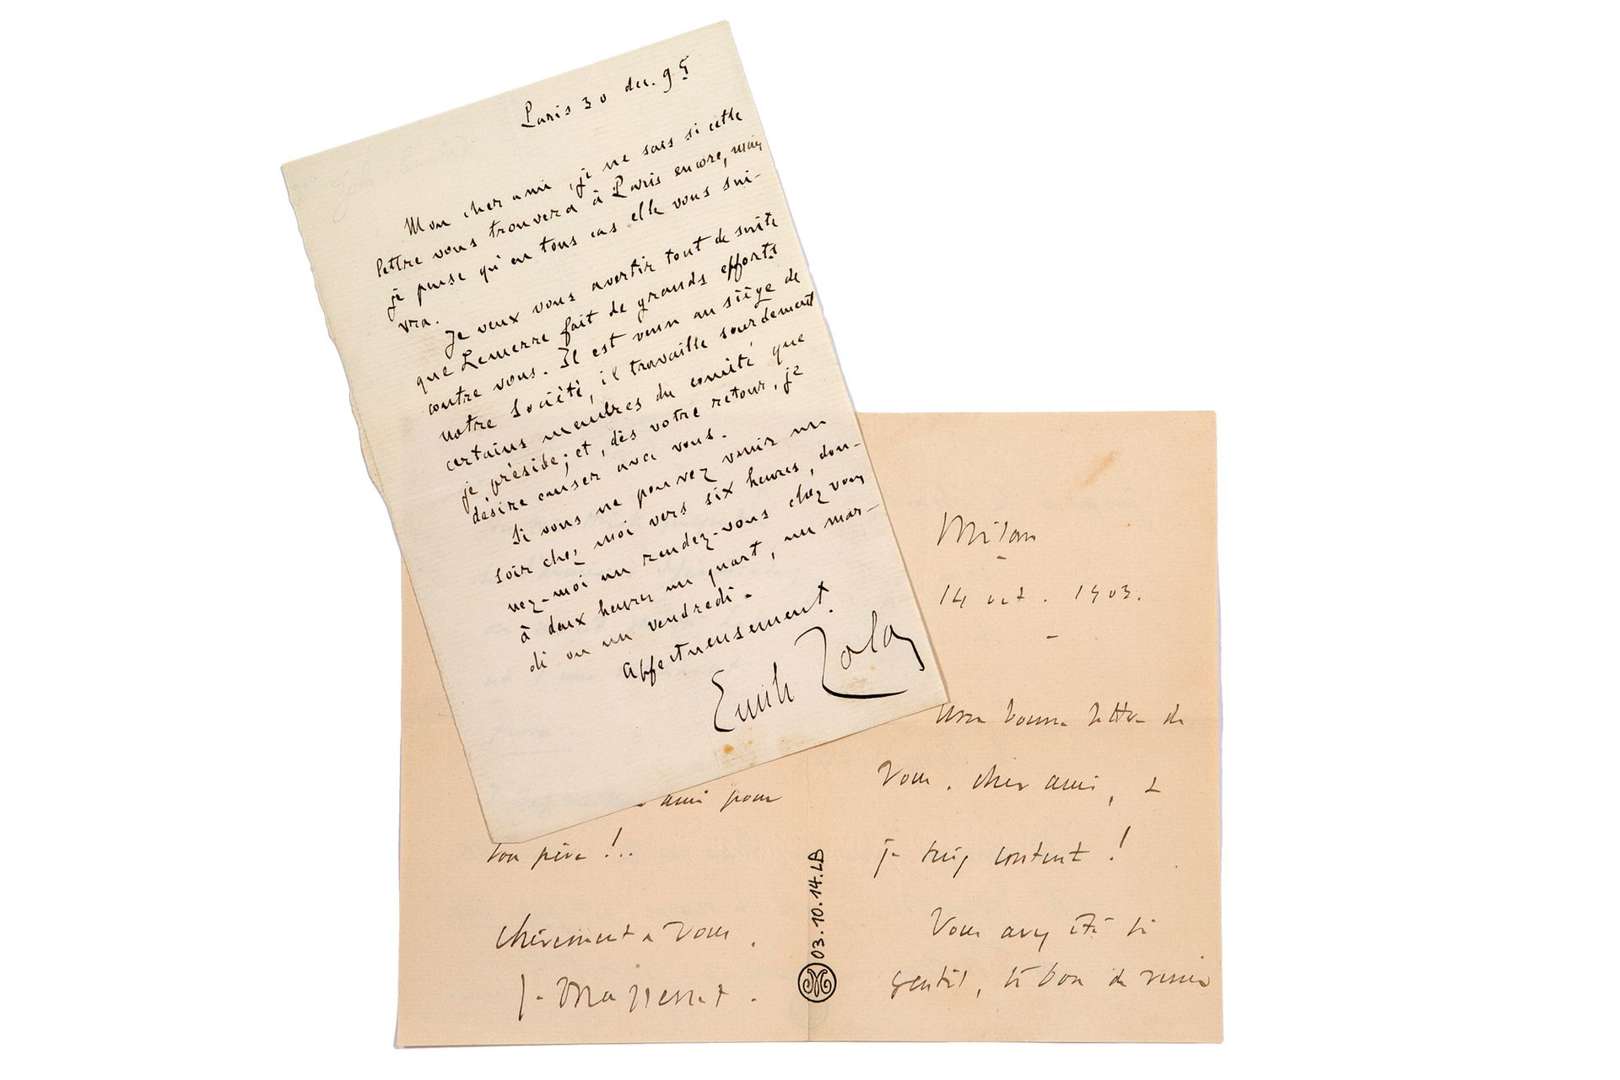 Paris 30 déc. 95
Mon cher ami, je ne sais si cette
lettre vous trouvera à Paris encore, mais
je pense qu'en tous cas elle vous sui-
vra.
Je veux vous avertir tout de suite
que Lemerre fait de grands efforts
contre vous. Il est venu au siège de
notre Société, il travaille sourdement
certains membres du comité que
je préside; et, dès votre retour, je
désire causer avec vous.
Si vous ne pouvez venir un
soir chez moi vers six heures, don-
nez-moi un rendez-vous chez vous
à deux heures un quart, un mar-
di ou un vendredi.
Affectueusement.
Emile Zola
ami pour
ton père !..
chèrement à vous.
J. Massenet.
03.10.14.LB
Milan
14 oct. 1903.
Une bonne lettre de
vous, cher ami, &
je suis content !
Vous avez été si
gentil, si bon de venir